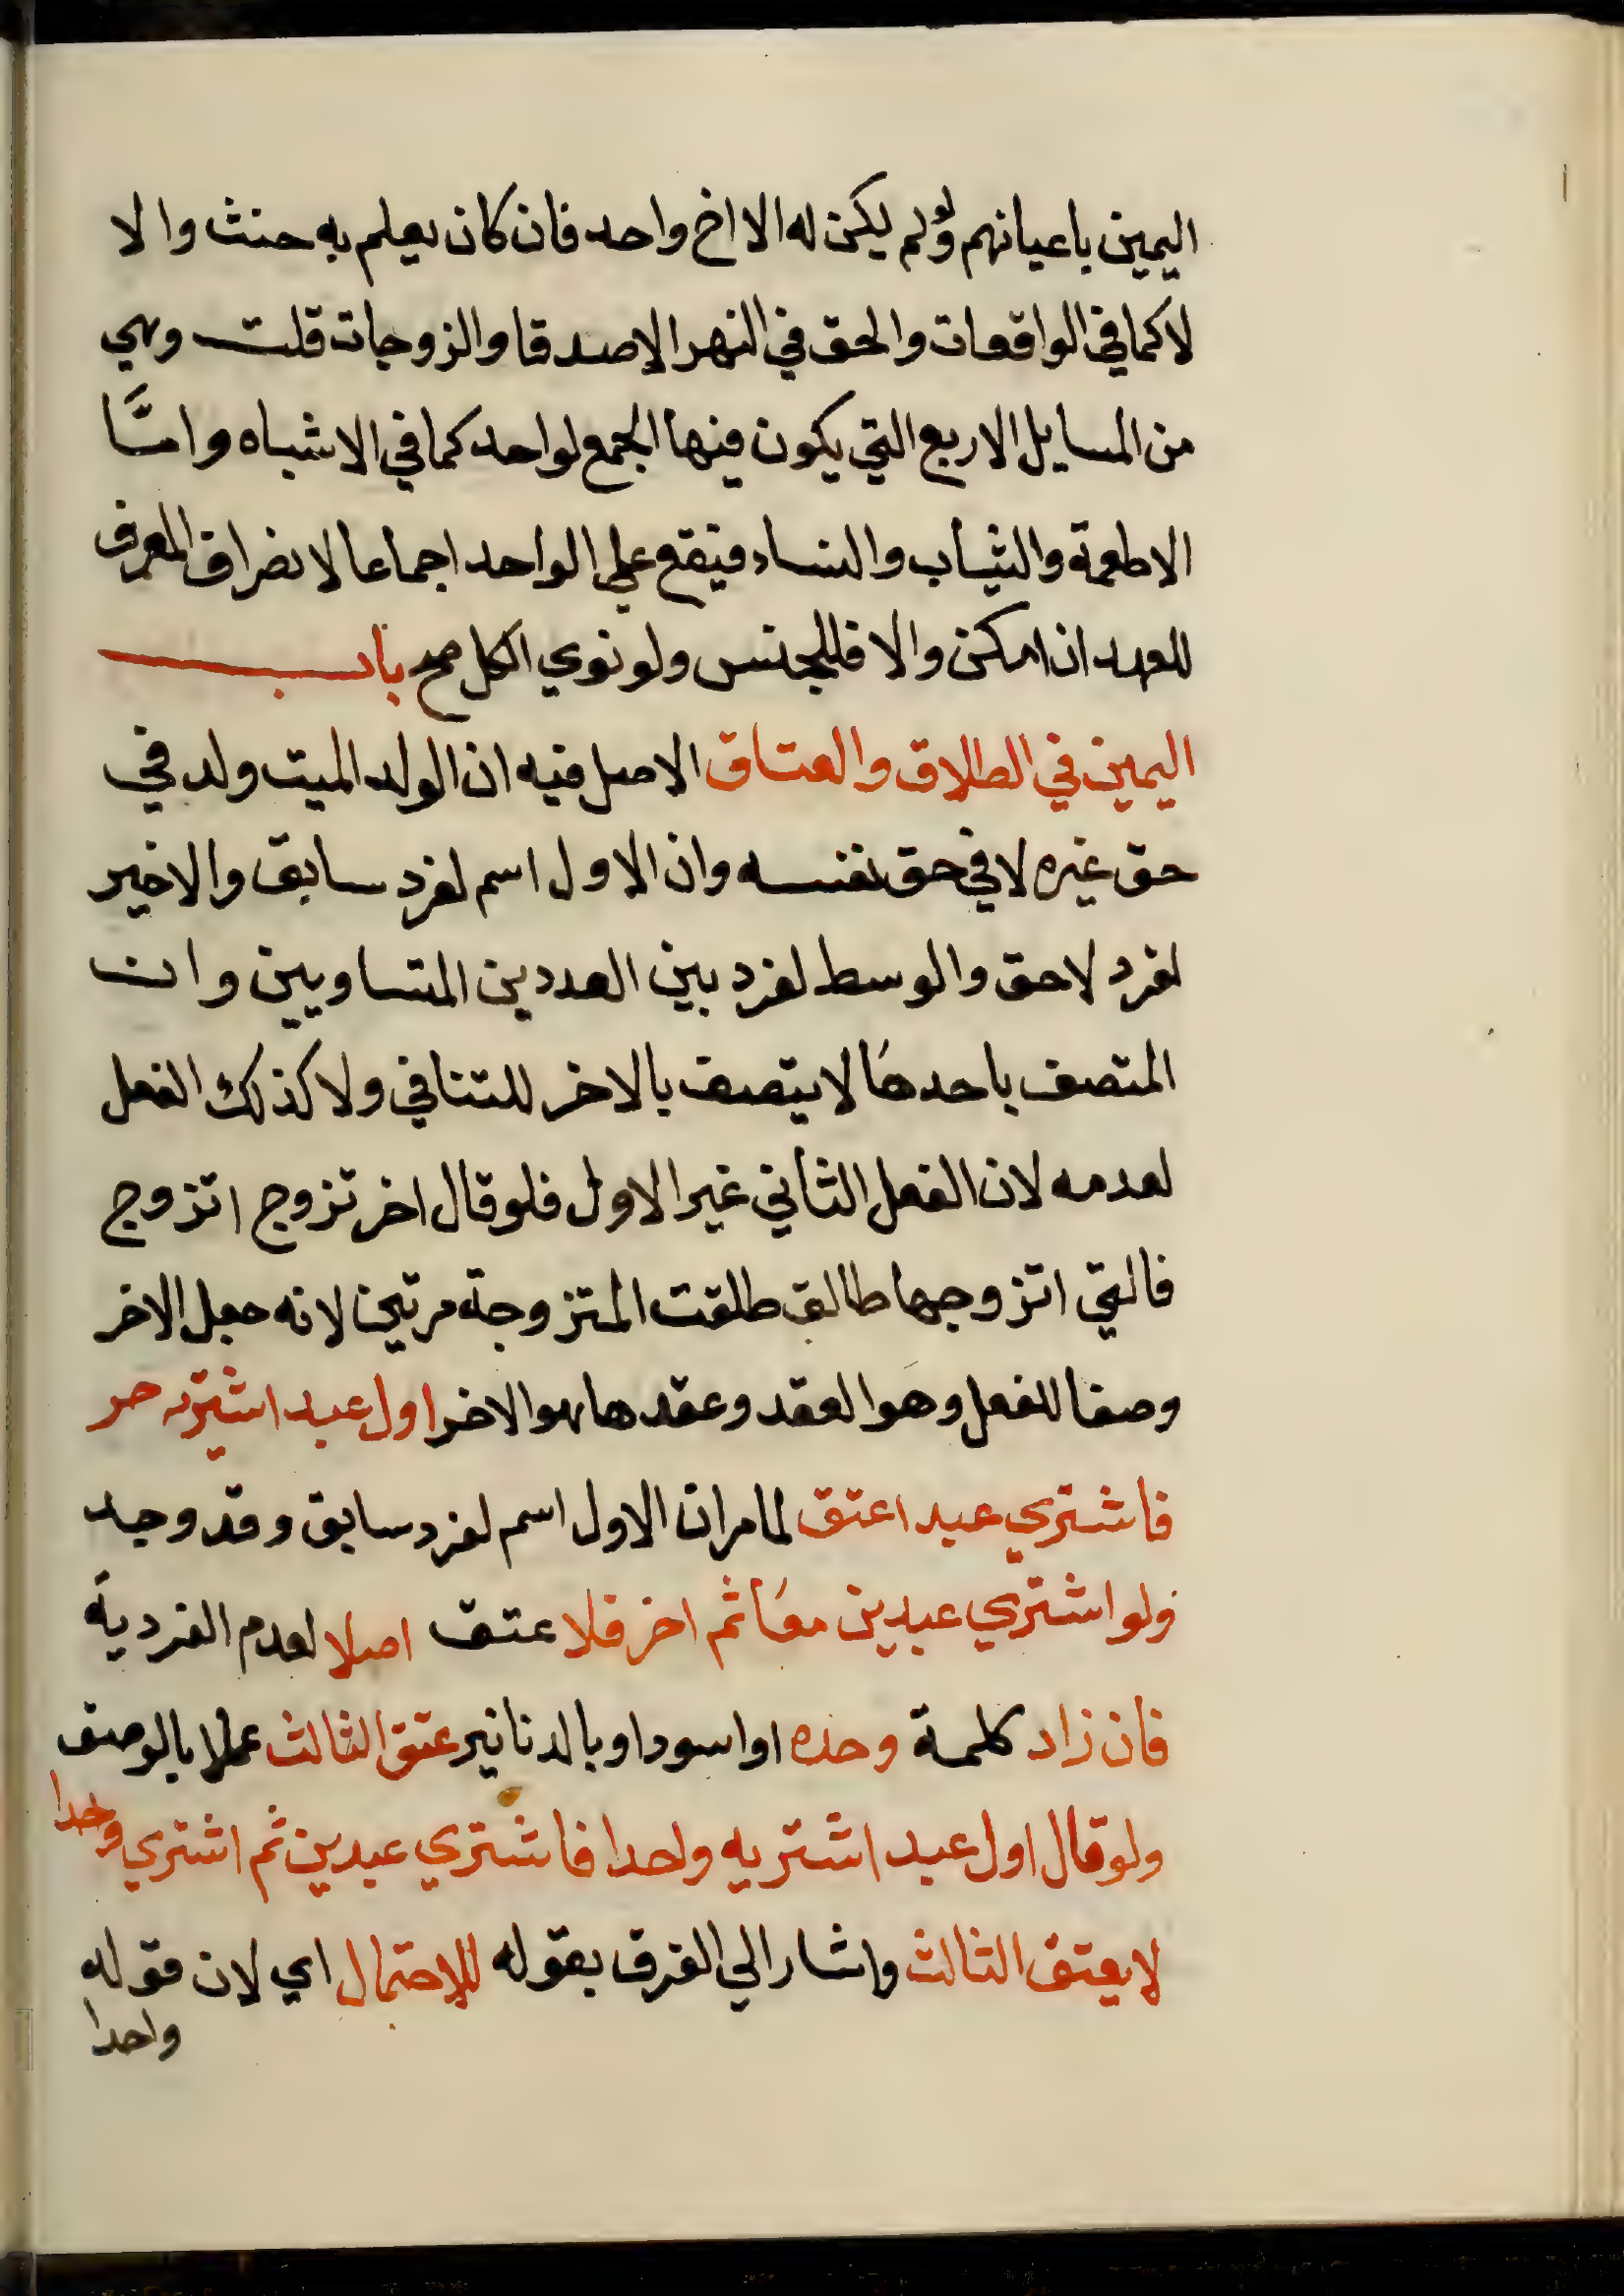 اليمين باعيانهم ولو لم يكن له الا اخ واحد فان كان يعلم به حنث والا
لا كما في الواقعات والحق في النهر الاصدقا والزوجات قلت وهي
من المسايل الاربع التي يكون فيها الجمع لواحد كما في الاشباه وامّا
الاطعمة والثياب والنساء فيقع علي الواحد اجماعا لانصراف المعرف
للعهد ان امكن والا فللجنس ولو نوي الكل صح باب
اليمين في الطلاق والعتاق الاصل فيه ان الولد الميت ولد في
حق غيره لا في حق نفسه وان الاول اسم لفرد سابق والاخير
لفرد لاحق والوسط لفرد بين العددين المتساويين وان
المتصف باحدها لا يتصف بالاخر للتنافي ولا كذلك الفعل
لعدمه لان الفعل الثاني غير الاول فلو قال اخر تزوج اتزوج
فالتي اتزوجها طالق طلقت المتزوجة مرتين لانه جعل الاخر
وصفا للفعل وهو العقد وعقدها هو الاخر اول عبد اشتريه حر
فاشتري عبدا عتق لما مر ان الاول اسم لفرد سابق وقد وجد
ولو اشتري عبدين معًا ثم اخر فلا عتق اصلا لعدم الفردية
فان زاد كلمة وحده او اسود او بالدنانير عتق الثالث عملا بالوصف
ولو قال اول عبد اشتريه واحدا فاشتري عبدين ثم اشتري واحدا
لا يعتق الثالث واشار الي الفرق بقوله للاحتمال اي لان قوله
واحدا